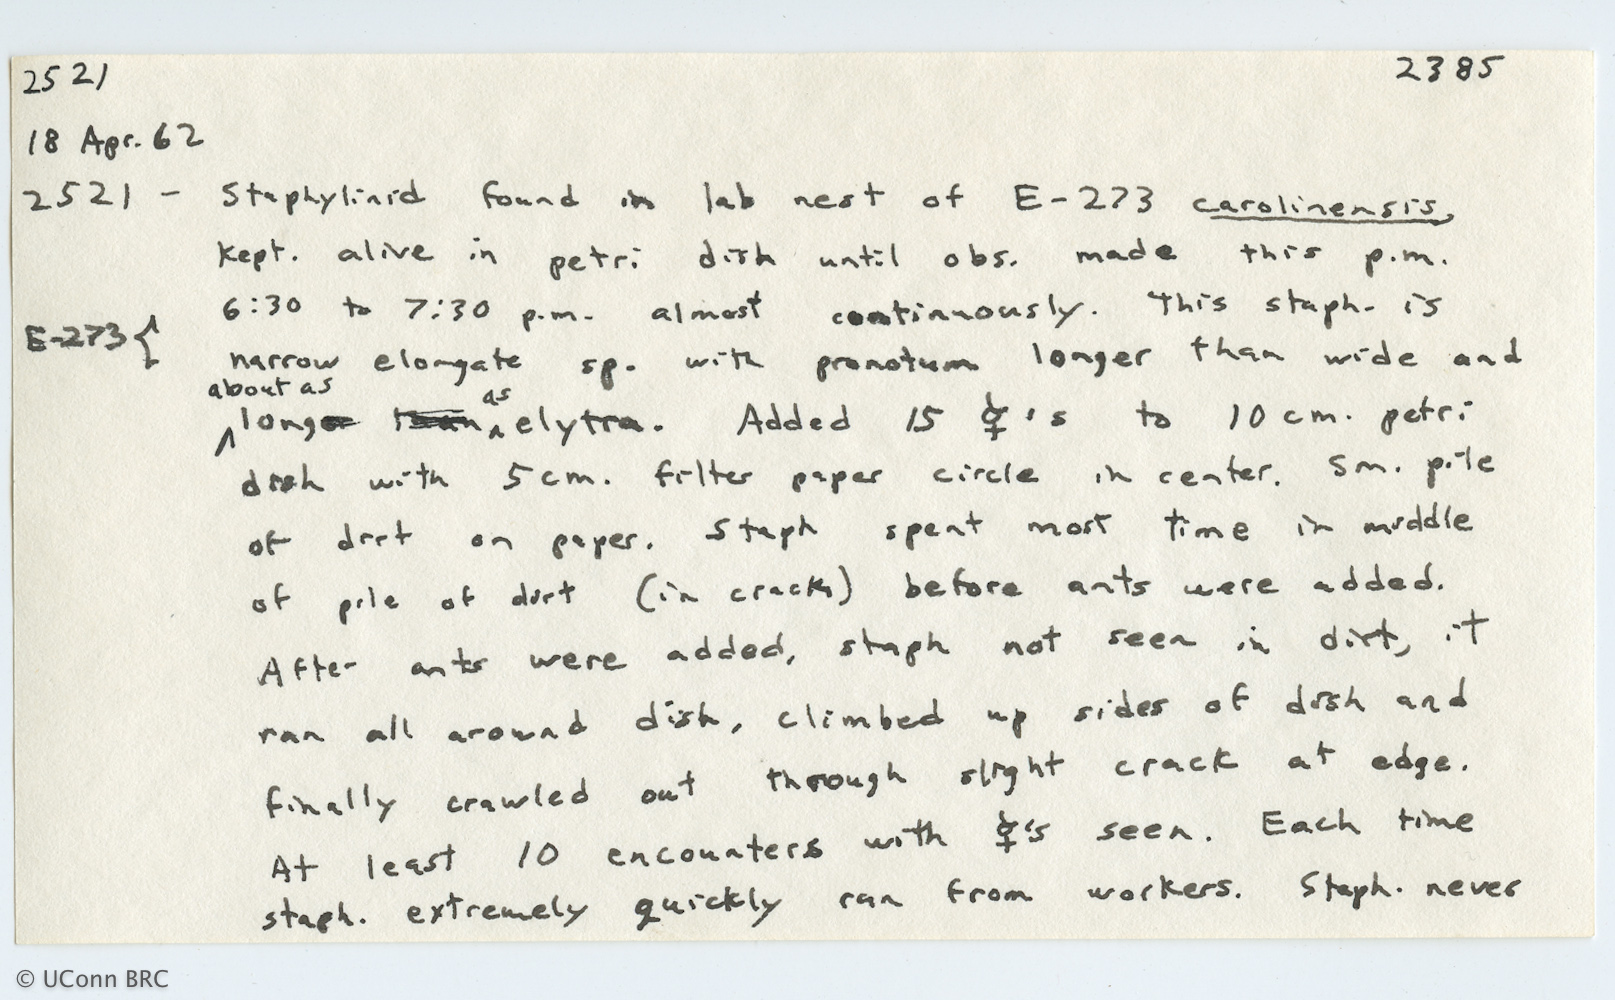 2521 2385
18 Apr. 62
2521 - Staphylinid found in lab nest of E-273 carolinensis,
kept. alive in petri dish until obs. made this p.m.
6:30 to 7:30 p.m. almost continuously. This staph. is
E-273 { narrow elongate sp. with pronotum longer than wide and
about as as
^longer than ^ elytra. Added 15 ☿'s to 10 cm. petri
dish with 5 cm. filter paper circle in center. Sm. pile
of dirt on paper. Staph spent most time in middle
of pile of dirt (in crack) before ants were added.
After ants were added, staph not seen in dirt, it
ran all around dish, climbed up sides of dish and
finally crawled out through slight crack at edge.
At least 10 encounters with ☿'s seen. Each time
staph. extremely quickly ran from workers. Staph. never
© UConn BRC